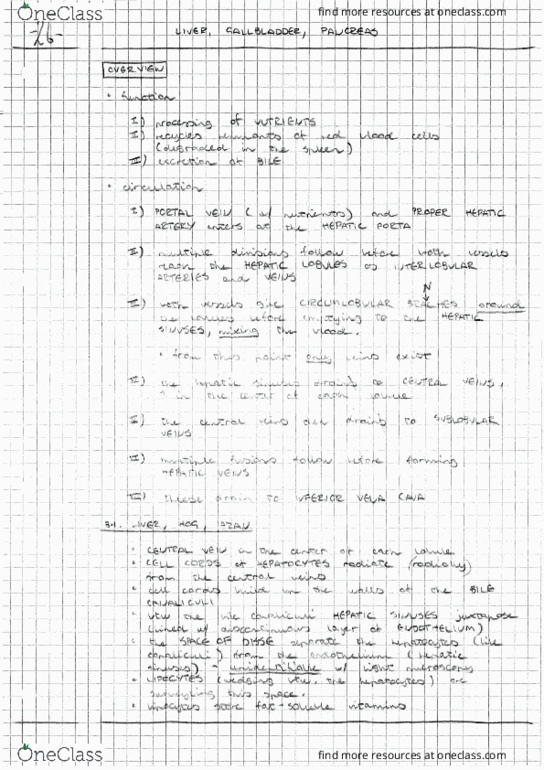 OneClass
find more resources at oneclass.com
-26-
LIVER, GALLBLADDER, PANCREAS
OVERVIEW
• function
I) processing of NUTRIENTS
II) recycles remnants of red blood cells
(degraded in the spleen)
III) excretion of BILE
• circulation
I) PORTAL VEIN (w/ nutrients) and PROPER HEPATIC
ARTERY enters at the HEPATIC PORTA
II) multiple divisions follow before both vessels
reach the HEPATIC LOBULES as INTERLOBULAR
ARTERIES and VEINS
III) both vessels give CIRCUMLOBULAR around
the lobules before emptying to the HEPATIC
SINUSES, mixing the blood.
• from this point only veins exist
the hepatic sinuses drains to CENTRAL VEINS,
in the center of each lobule
the central veins drains to SUBLOBULAR
VEINS
multiple fusions follow before forming
HEPATIC VEINS
these drain to INFERIOR VENA CAVA
LIVER, HOG, AZAN
• CENTRAL VEIN in the center of each lobule
• CELL CORDS of HEPATOCYTES radiate (radially)
from the central veins
• cell cords build up the walls of the BILE
CANALICULI
• the bile canaliculi HEPATIC SINUSES juxtapose
(lined w/ discontinuous layer of ENDOTHELIUM)
• the SPACE OF DISSE separate the hepatocytes (bile
canaliculi) from the endothelium (hepatic
sinuses) - w/ light microscope
• LIPOCYTES (wedging btw. the hepatocytes) are
this space.
• lipocytes store fat-soluble vitamins
OneClass
find more resources at oneclass.com